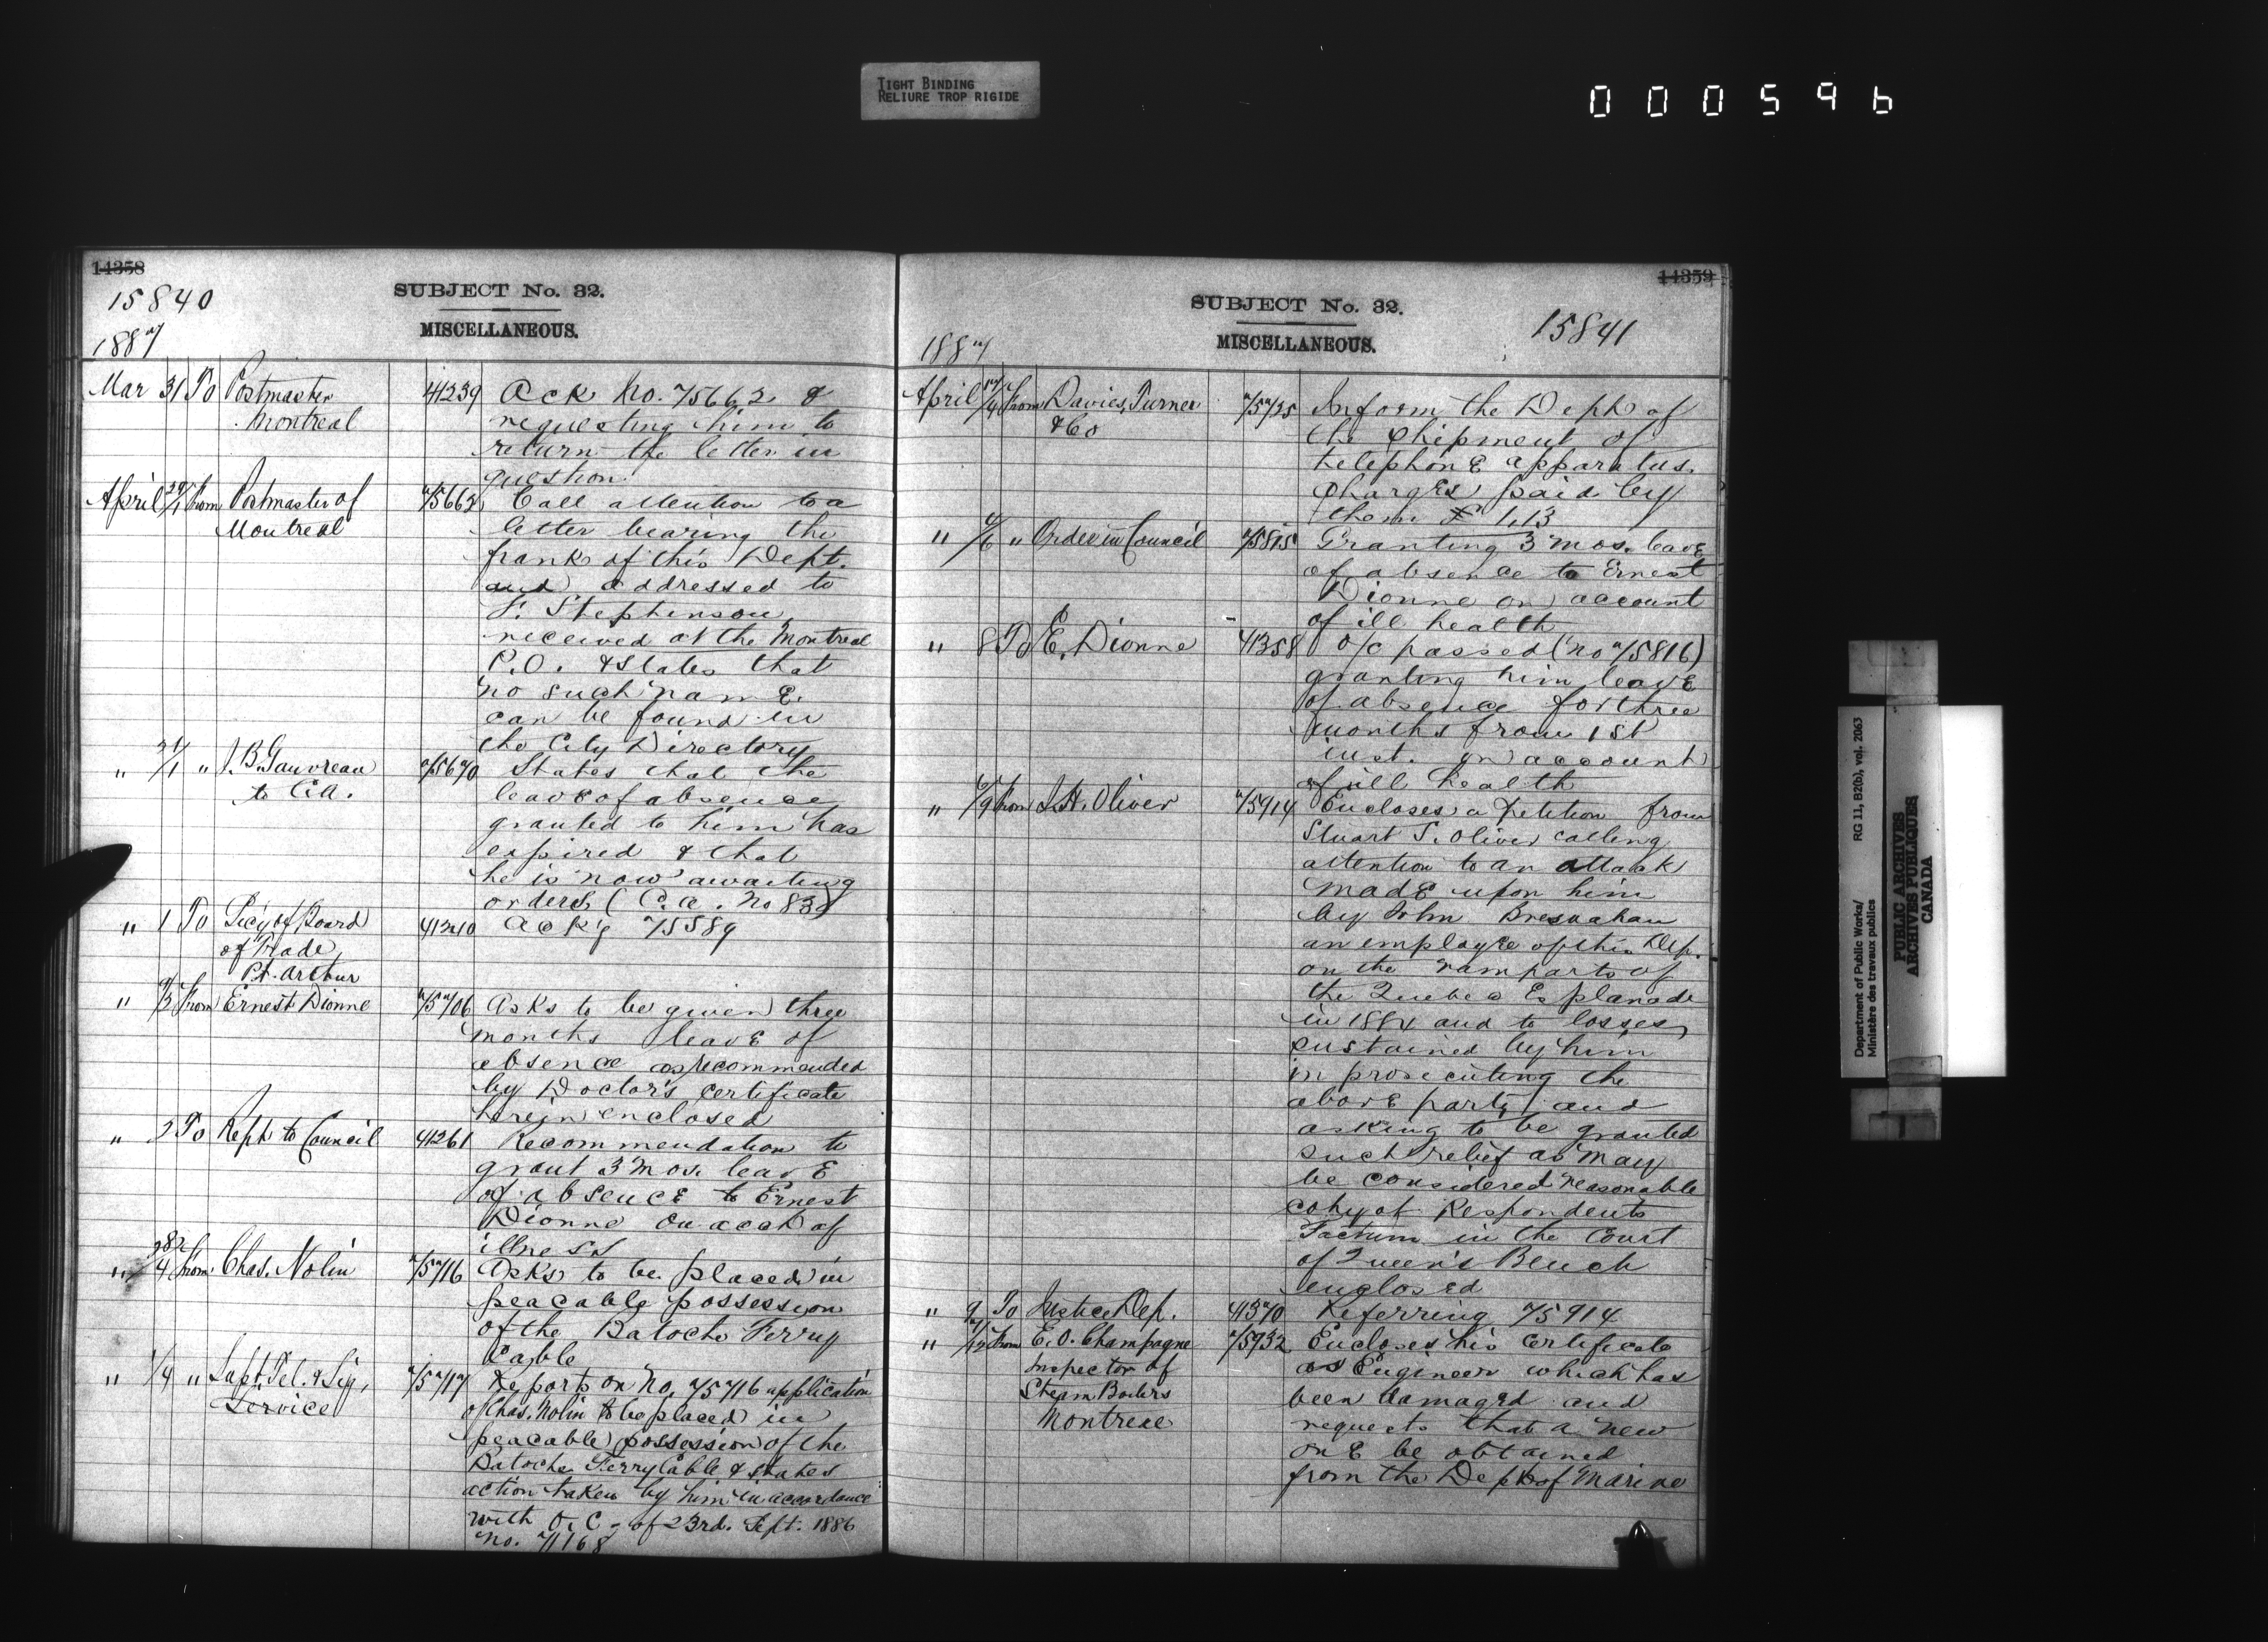 TIGHT BINDING
RELIURE TROP RIGIDE
000596
14358
15840
SUBJECT No. 32.
MISCELLANEOUS.
1887
Mar 31 To Postmaster 41239 Ack No. 75662 &
Montreal requesting him to
return the letter in
question
April 29/1 From Postmaster of 75662 Call attention to a
Montreal letter bearing the
frank of this Dept.
and addressed to
F. Stephenson
received at the Montreal
P.O. & states that
no such name
can be found in
the City Directory
" 31/1 " J. B. Gauvreau 75670 States that the
to C.A. leave of absence
granted to him has
expired & that
he is now awaiting
orders (C.a. No 838)
" 1 To Sec'y of Board 41240 Ack'g 75589
of Trade
Pt. Arthur
" /2 From Ernest Dionne 75706 Asks to be given three
months leave of
absence as recommended
by Doctor's certificate
herein enclosed
" 2 To Rept to Council 41261 Recommendation to
grant 3 mos. leave
of absence to Ernest
Dionne on acct of
illness
" 28/4 From Chas. Nolin 75716 Asks to be placed in
peacable possession
of the Batoche Ferry
Cable
" 1/4 " Supt. Tel. & Sig. 75717 Reports on No. 75716 application
Service of Chas. Nolin to be placed in
peacable possession of the
Batoche Ferry Cable & states
action taken by him in accordance
with O.C. of 23rd. Sept. 1886
no. 71168
14359
SUBJECT No. 32.
15841
MISCELLANEOUS.
1887
April 17/4 From Davies, Turner 75725 Inform the Dept of
& Co the shipment of
telephone apparatus.
Charges paid by
them £ 1.13
" /6 " Order in Council 75815 Granting 3 mos. leave
of absence to Ernest
Dionne on account
of ill health
" 8 To E. Dionne 41358 O/C passed (no 75816)
granting him leave
of absence for three
months from 1st
inst. on account
of ill health
" /9 From J. H. Oliver 75914 Encloses a petition from
Stuart S. Oliver calling
attention to an attack
made upon him
by John Bresnahan
an employee of this Dep.
on the ramparts of
the Quebec Esplanade
in 1884 and to losses
sustained by him
in prosecuting the
above party and
asking to be granted
such relief as may
be considered reasonable
copy of Respondents
Factum in the Court
of Queen's Bench
enclosed
" 9 To Justice Dep. 41370 Referring 75914
" /12 From E. O. Champagne 75932 Encloses his Certificate
Inspector of as Engineer which has
Steam Boilers been damaged and
Montreal requests that a new
one be obtained
from the Dept of Marine
Department of Public Works/ RG 11, B2(b), vol. 2063
Ministère des travaux publics
PUBLIC ARCHIVES
ARCHIVES PUBLIQUES
CANADA